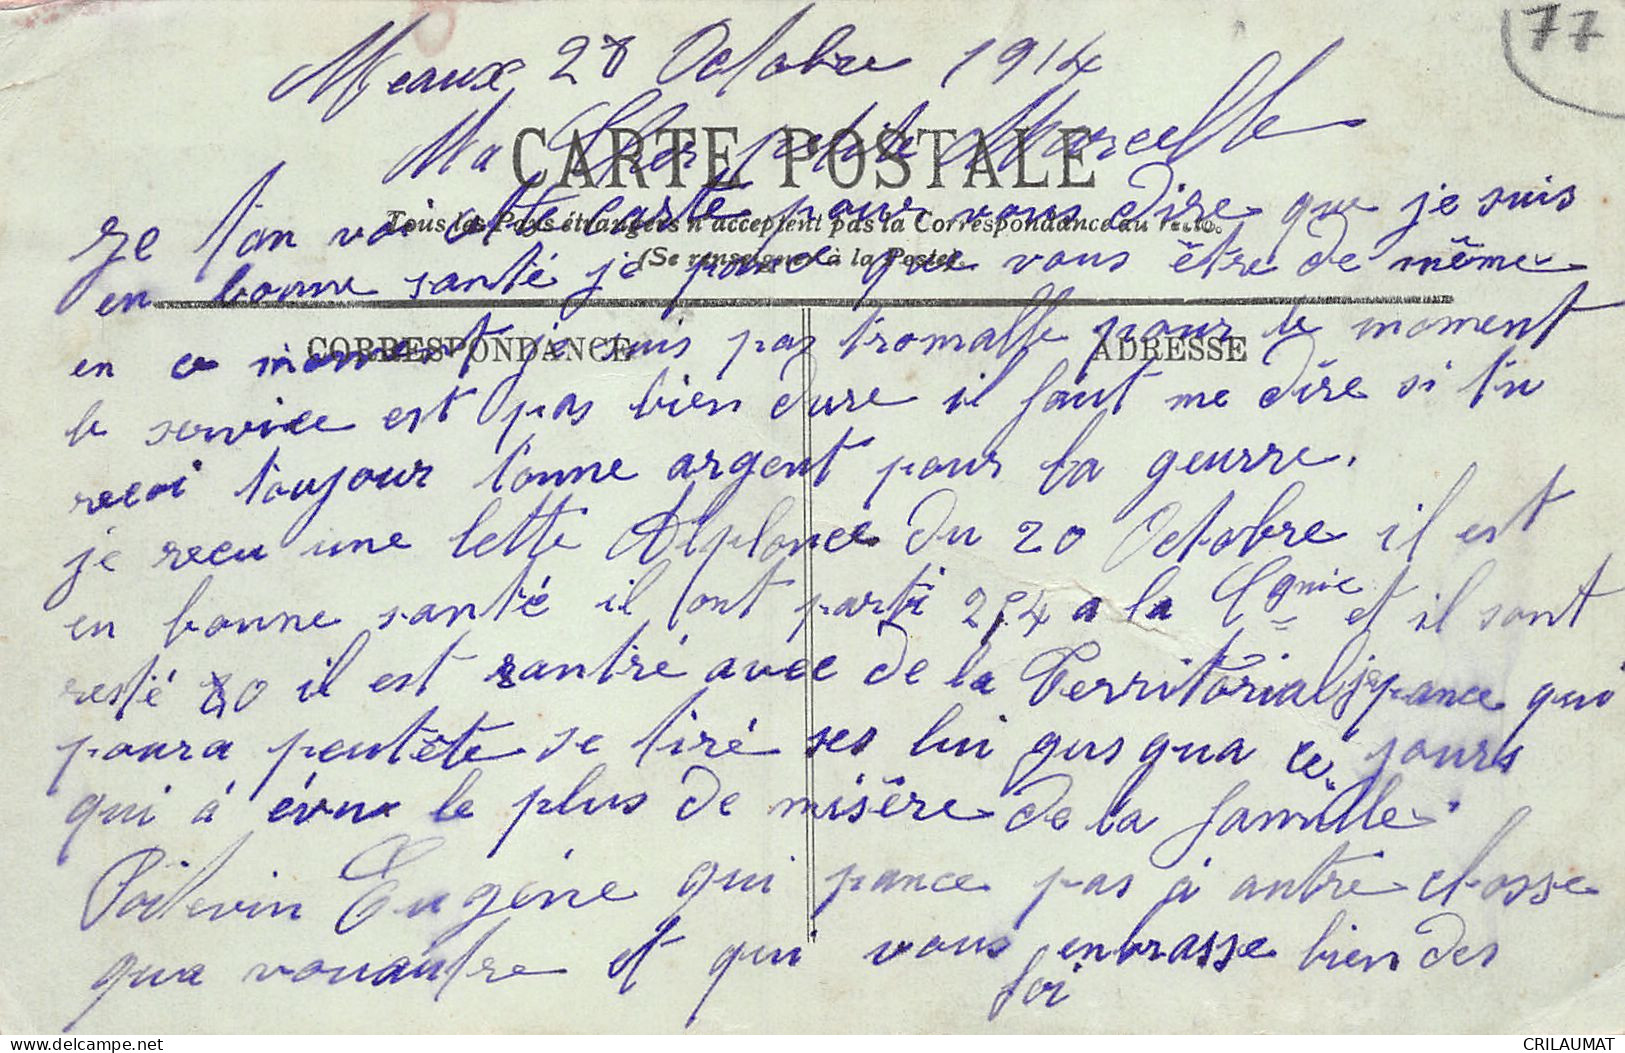 77
Meaux 28 Octobre 1914
Ma Cher petite Marcelle
CARTE POSTALE
je t'an voi cete carte pour vous dire que je suis
Tous les Pays étrangers n'acceptent pas la Correspondance au recto.
(Se renseigner à la Poste).
en bonne santé je pance que vous être de même
CORRESPONDANCE
ADRESSE
en ce moment je suis pas tromalle pour le moment
le service est pas bien dure il faut me dire si t'u
recoi toujour tonne argent pour la geurre.
je recu une lette Alphonce du 20 Octobre il est
en bonne santé il sont parti 254 a la Cgnie et il sont
resté 80 il est rantré avec de la Territorial je pance qui
poura peutête se tiré ses lui qusqua ce jours
qui à évue le plus de misère de la famille.
Poitevin Eugène qui pance pas à autre chosse
qua vouautre et qui vous enbrasse bien des
foi
CRILAUMAT